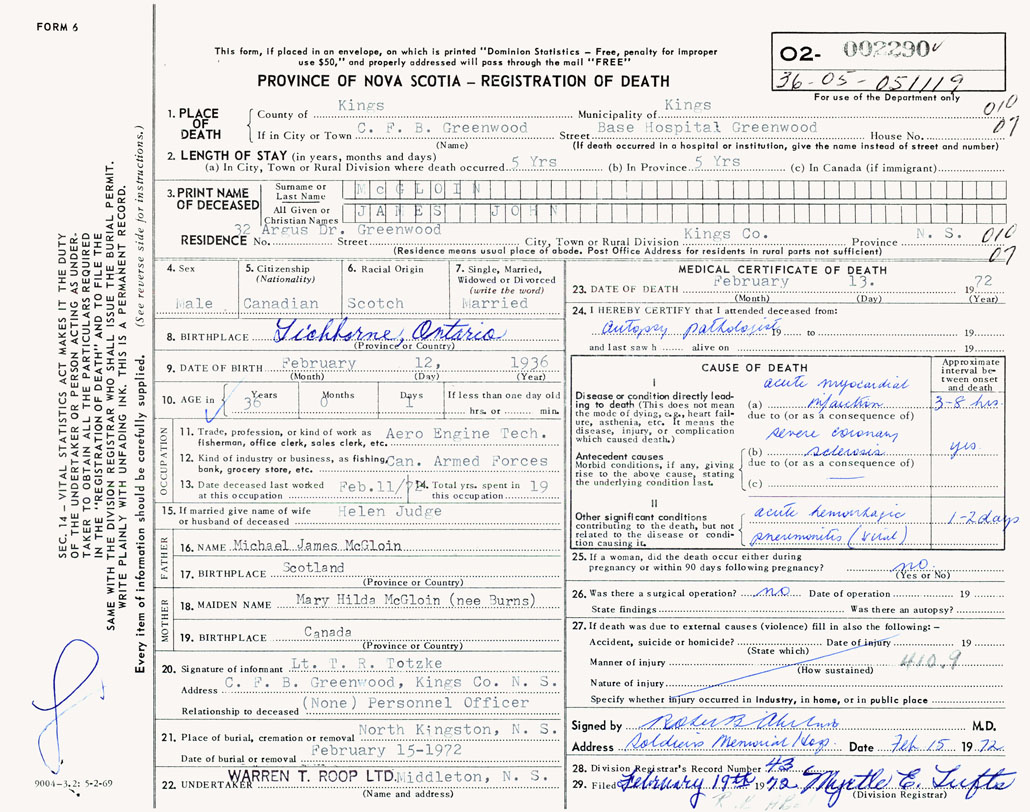 FORM 6
This form, if placed in an envelope, on which is printed "Dominion Statistics – Free, penalty for improper
use $50," and properly addressed will pass through the mail "FREE"
PROVINCE OF NOVA SCOTIA – REGISTRATION OF DEATH
02- 002290
36-05-051119
For use of the Department only
010
07
1. PLACE OF DEATH
County of Kings Municipality of Kings
If in City or Town C. F. B. Greenwood Street Base Hospital Greenwood House No.
(Name) (If death occurred in a hospital or institution, give the name instead of street and number)
2. LENGTH OF STAY (in years, months and days)
(a) In City, Town or Rural Division where death occurred 5 Yrs (b) In Province 5 Yrs (c) In Canada (if immigrant)
3. PRINT NAME OF DECEASED
Surname or Last Name McGLOIN
All Given or Christian Names JAMES JOHN
32 Argus Dr. Greenwood Kings Co. N. S. 010
RESIDENCE No. Street City, Town or Rural Division Province
(Residence means usual place of abode. Post Office Address for residents in rural parts not sufficient) 07
4. Sex
Male
5. Citizenship
(Nationality)
Canadian
6. Racial Origin
Scotch
7. Single, Married,
Widowed or Divorced
(write the word)
Married
8. BIRTHPLACE Tichborne, Ontario
(Province or Country)
9. DATE OF BIRTH February 12, 1936
(Month) (Day) (Year)
10. AGE in Years Months Days If less than one day old
36 0 1 hrs. or min.
OCCUPATION
11. Trade, profession, or kind of work as
fisherman, office clerk, sales clerk, etc. Aero Engine Tech.
12. Kind of industry or business, as fishing,
bank, grocery store, etc. Can. Armed Forces
13. Date deceased last worked
at this occupation Feb.11/72
14. Total yrs. spent in
this occupation 19
15. If married give name of wife
or husband of deceased Helen Judge
FATHER
16. NAME Michael James McGloin
17. BIRTHPLACE Scotland
(Province or Country)
MOTHER
18. MAIDEN NAME Mary Hilda McGloin (nee Burns)
19. BIRTHPLACE Canada
(Province or Country)
20. Signature of informant Lt. T. R. Totzke
Address C. F. B. Greenwood, Kings Co. N. S.
Relationship to deceased (None) Personnel Officer
21. Place of burial, cremation or removal North Kingston, N. S.
Date of burial or removal February 15-1972
22. UNDERTAKER WARREN T. ROOP LTD. Middleton, N. S.
(Name and address)
MEDICAL CERTIFICATE OF DEATH
23. DATE OF DEATH February 13. 1972
(Month) (Day) (Year)
24. I HEREBY CERTIFY that I attended deceased from:
autopsy pathologist 19 to 19
and last saw h alive on 19
CAUSE OF DEATH
Approximate
interval be-
tween onset
and death
I
Disease or condition directly lead-
ing to death (This does not mean
the mode of dying, e.g., heart fail-
ure, asthenia, etc. It means the
disease, injury, or complication
which caused death.)
acute myocardial
(a) infarction 3-8 hrs.
due to (or as a consequence of)
severe coronary
(b) sclerosis yes
due to (or as a consequence of)
(c) —
Antecedent causes
Morbid conditions, if any, giving
rise to the above cause, stating
the underlying condition last.
II
Other significant conditions
contributing to the death, but not
related to the disease or condi-
tion causing it.
acute hemorrhagic 1-2 days
pneumonitis (viral)
25. If a woman, did the death occur either during
pregnancy or within 90 days following pregnancy? no
(Yes or No)
26. Was there a surgical operation? no Date of operation 19
State findings Was there an autopsy?
27. If death was due to external causes (violence) fill in also the following:–
Accident, suicide or homicide? Date of injury 19
(State which)
Manner of injury 410.9
(How sustained)
Nature of injury
Specify whether injury occurred in Industry, in home, or in public place
Signed by M.D.
Address Soldiers Memorial Hosp Date Feb 15 1972
28. Division Registrar's Record Number 43
29. Filed February 19th 1972 Myrtle E. Tufts
(Division Registrar)
SEC. 14 – VITAL STATISTICS ACT MAKES IT THE DUTY
OF THE UNDERTAKER OR PERSON ACTING AS UNDER-
TAKER TO OBTAIN ALL THE PARTICULARS REQUIRED
IN THE "REGISTRATION OF DEATH" AND TO FILE THE
SAME WITH THE DIVISION REGISTRAR WHO SHALL ISSUE THE BURIAL PERMIT.
WRITE PLAINLY WITH UNFADING INK. THIS IS A PERMANENT RECORD.
Every item of information should be carefully supplied. (See reverse side for instructions.)
9004-3.2: 5-2-69